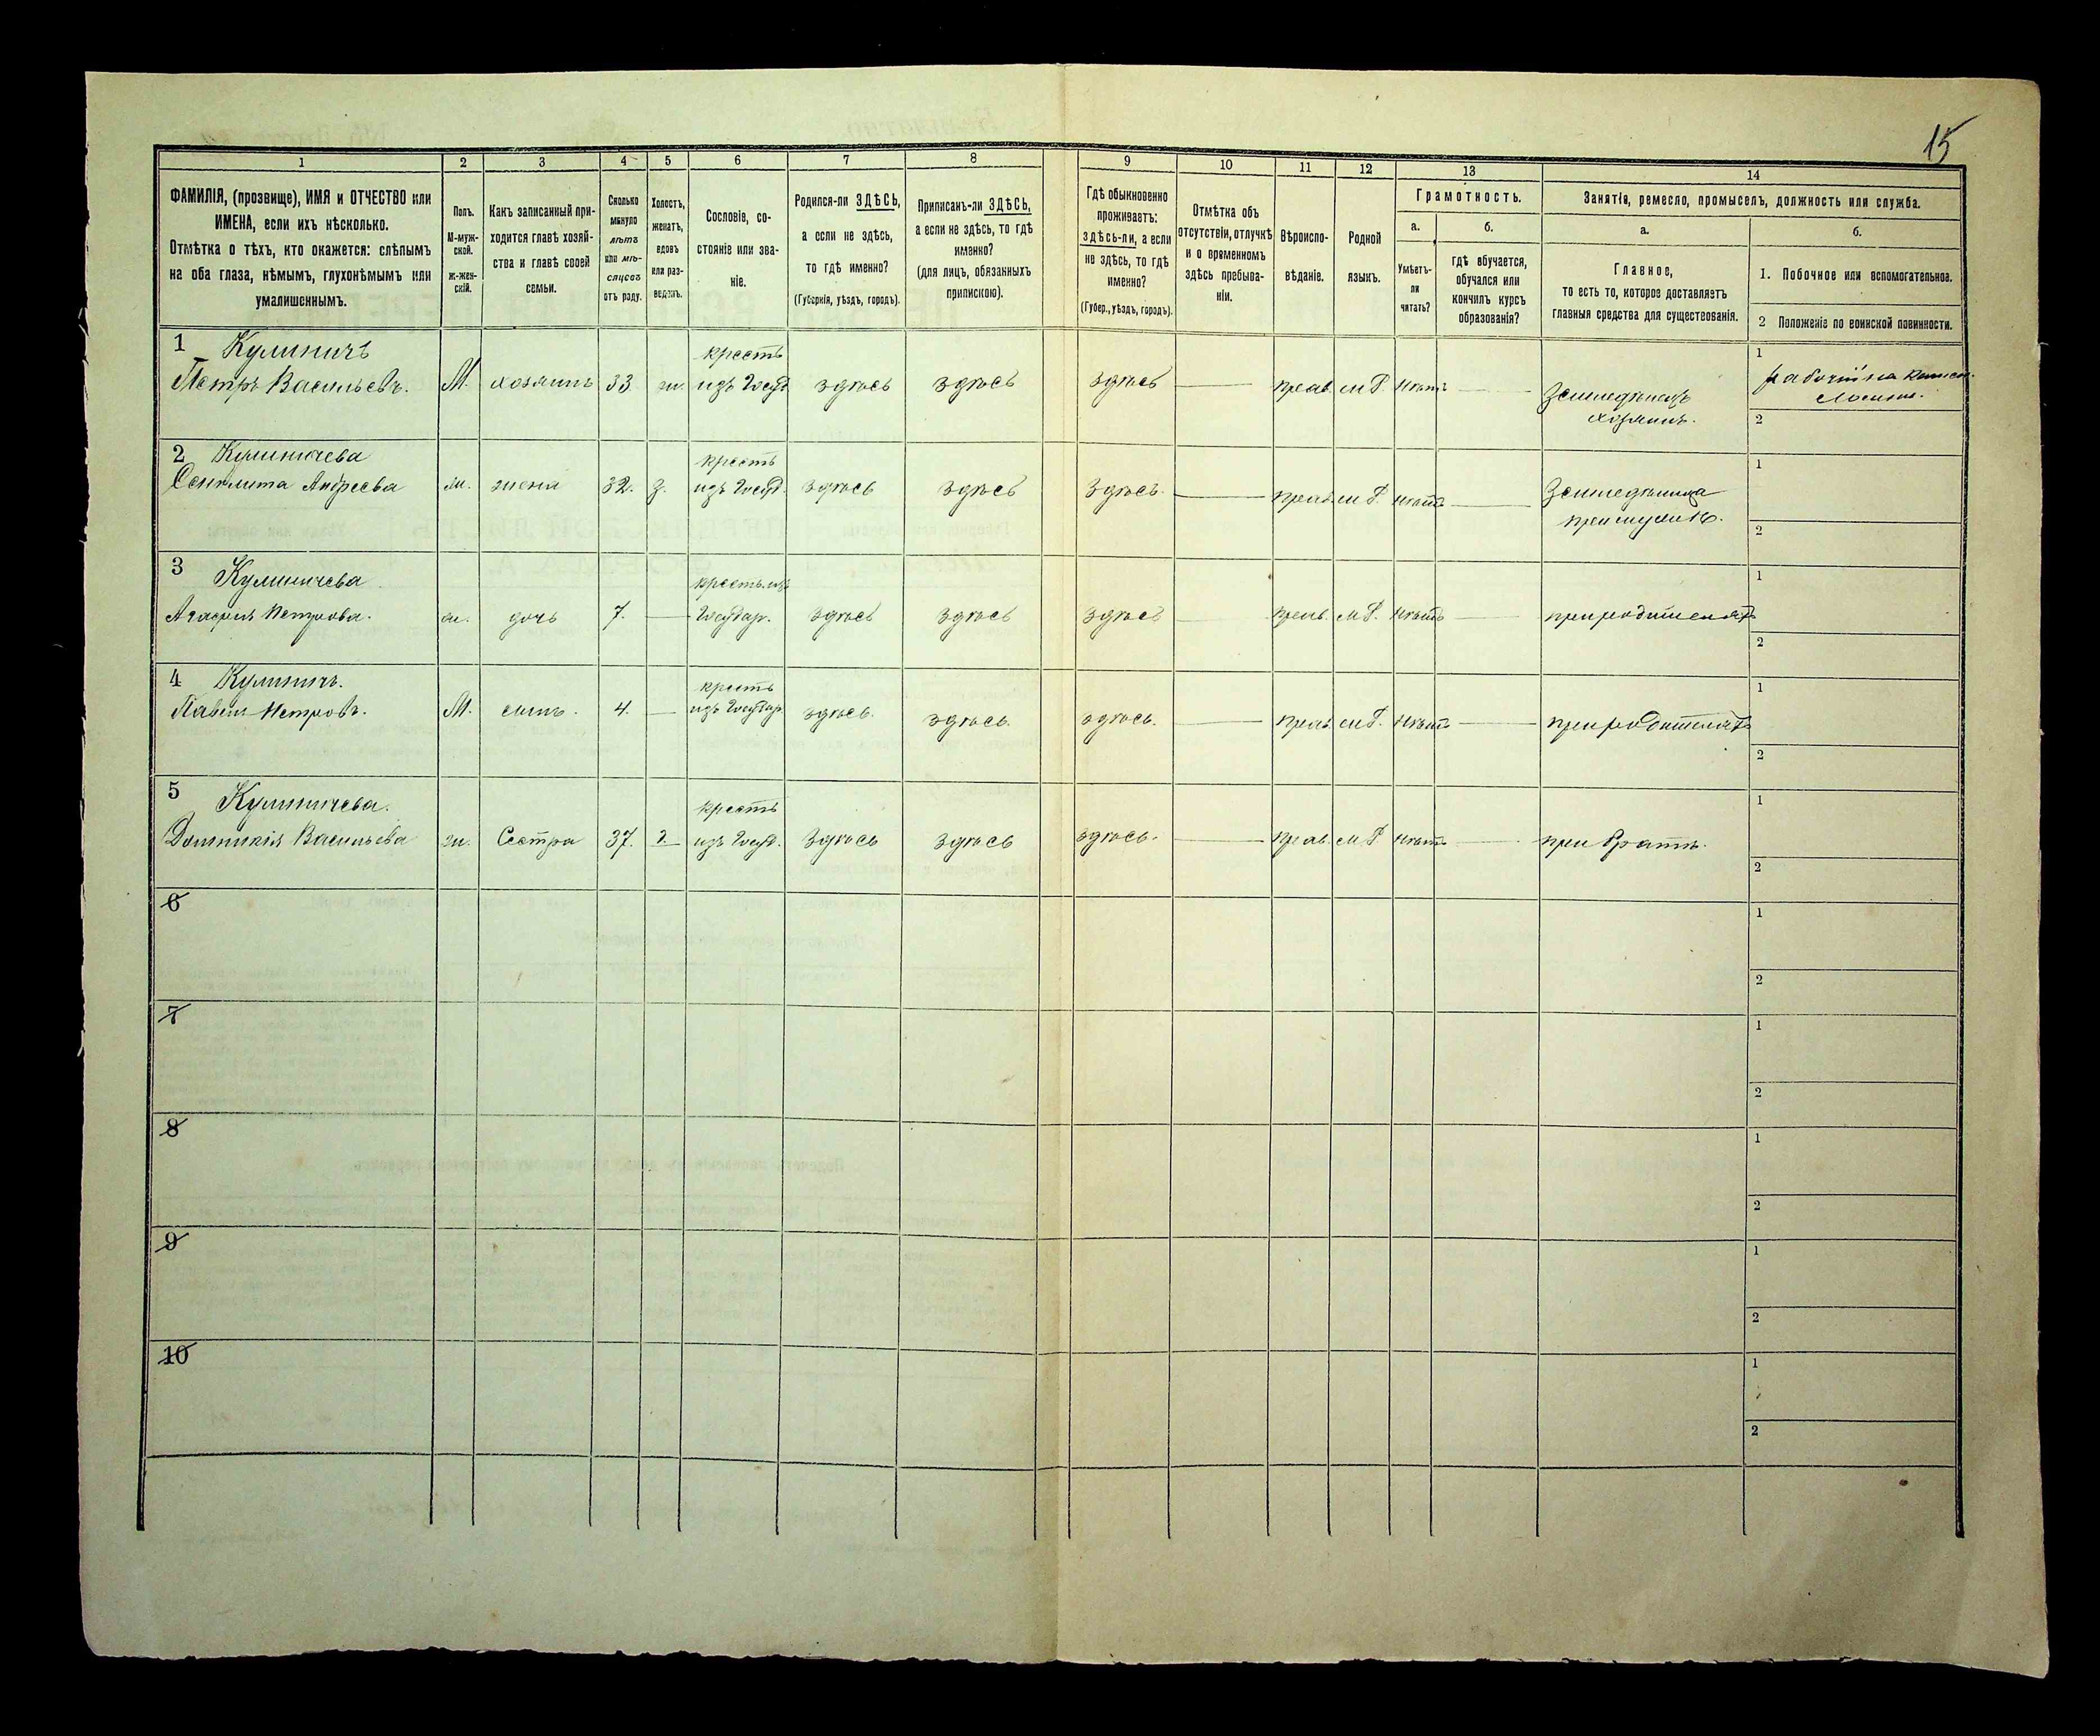 15
1 2 3 4 5 6 7 8 9 10 11 12 13 14
ФАМИЛІЯ, (прозвище), ИМЯ и ОТЧЕСТВО или
ИМЕНА, если ихъ нѣсколько.
Отмѣтка о тѣхъ, кто окажется: слѣпымъ
на оба глаза, нѣмымъ, глухонѣмымъ или
умалишеннымъ.
Полъ.
М-муж-
ской.
ж-жен-
скій.
Какъ записанный при-
ходится главѣ хозяй-
ства и главѣ своей
семьи.
Сколько
минуло
лѣтъ
или мѣ-
сяцевъ
отъ роду.
Холостъ,
женатъ,
вдовъ
или раз-
веденъ.
Сословіе, со-
стояніе или зва-
ніе.
Родился-ли ЗДѢСЬ,
а если не здѣсь,
то гдѣ именно?
(Губернія, уѣздъ, городъ).
Приписанъ-ли ЗДѢСЬ,
а если не здѣсь, то гдѣ
именно?
(для лицъ, обязанныхъ
припискою).
Гдѣ обыкновенно
проживаетъ:
здѣсь-ли, а если
не здѣсь, то гдѣ
именно?
(Губер., уѣздъ, городъ).
Отмѣтка объ
отсутствіи, отлучкѣ
и о временномъ
здѣсь пребыва-
ніи.
Вѣроиспо-
вѣданіе.
Родной
языкъ.
Грамотность.
а.
Умѣетъ-
ли
читать?
б.
гдѣ обучается,
обучался или
кончилъ курсъ
образованія?
Занятія, ремесло, промыселъ, должность или служба.
а.
Главное,
то есть то, которое доставляетъ
главныя средства для существованія.
б.
1. Побочное или вспомогательное.
2 Положеніе по воинской повинности.
1 Кулиничъ крестъ 1
Петръ Васильевъ. М. хозяинъ 33 ж. изъ Госуд. здѣсь здѣсь здѣсь — прав. М Р. Нѣтъ — Земледѣлецъ рабочій на
хозяинъ. 2
2 Кулиничева крестъ 1
Андреева ж. жена 32. З. изъ Госуд. здѣсь здѣсь здѣсь. — прав. М Р. Нѣтъ — Земледѣлица
при мужѣ. 2
3 Кулиничева крестъ. изъ 1
Агафія Петрова. ж. дочь 7. — Государ. здѣсь здѣсь здѣсь — прав. М Р. Нѣтъ — при родителяхъ
2
4 Кулиничъ. крестъ 1
Павелъ Петровъ. М. сынъ. 4. — изъ Государ. здѣсь. здѣсь. здѣсь. — прав. М Р. Нѣтъ — при родителяхъ
2
5 Кулиничева. крестъ 1
Домникія Васильева ж. Сестра 37. изъ Госуд. здѣсь здѣсь здѣсь. — прав. М Р Нѣтъ — при братѣ.
2
6 1
2
7 1
2
8 1
2
9 1
2
10 1
2